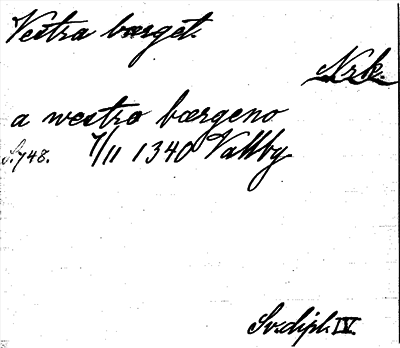 Vestra bærget.
Nrk.
a westro bærgeno
S. 748. 7/11 1340 Vallby
Sv. dipl. IV.